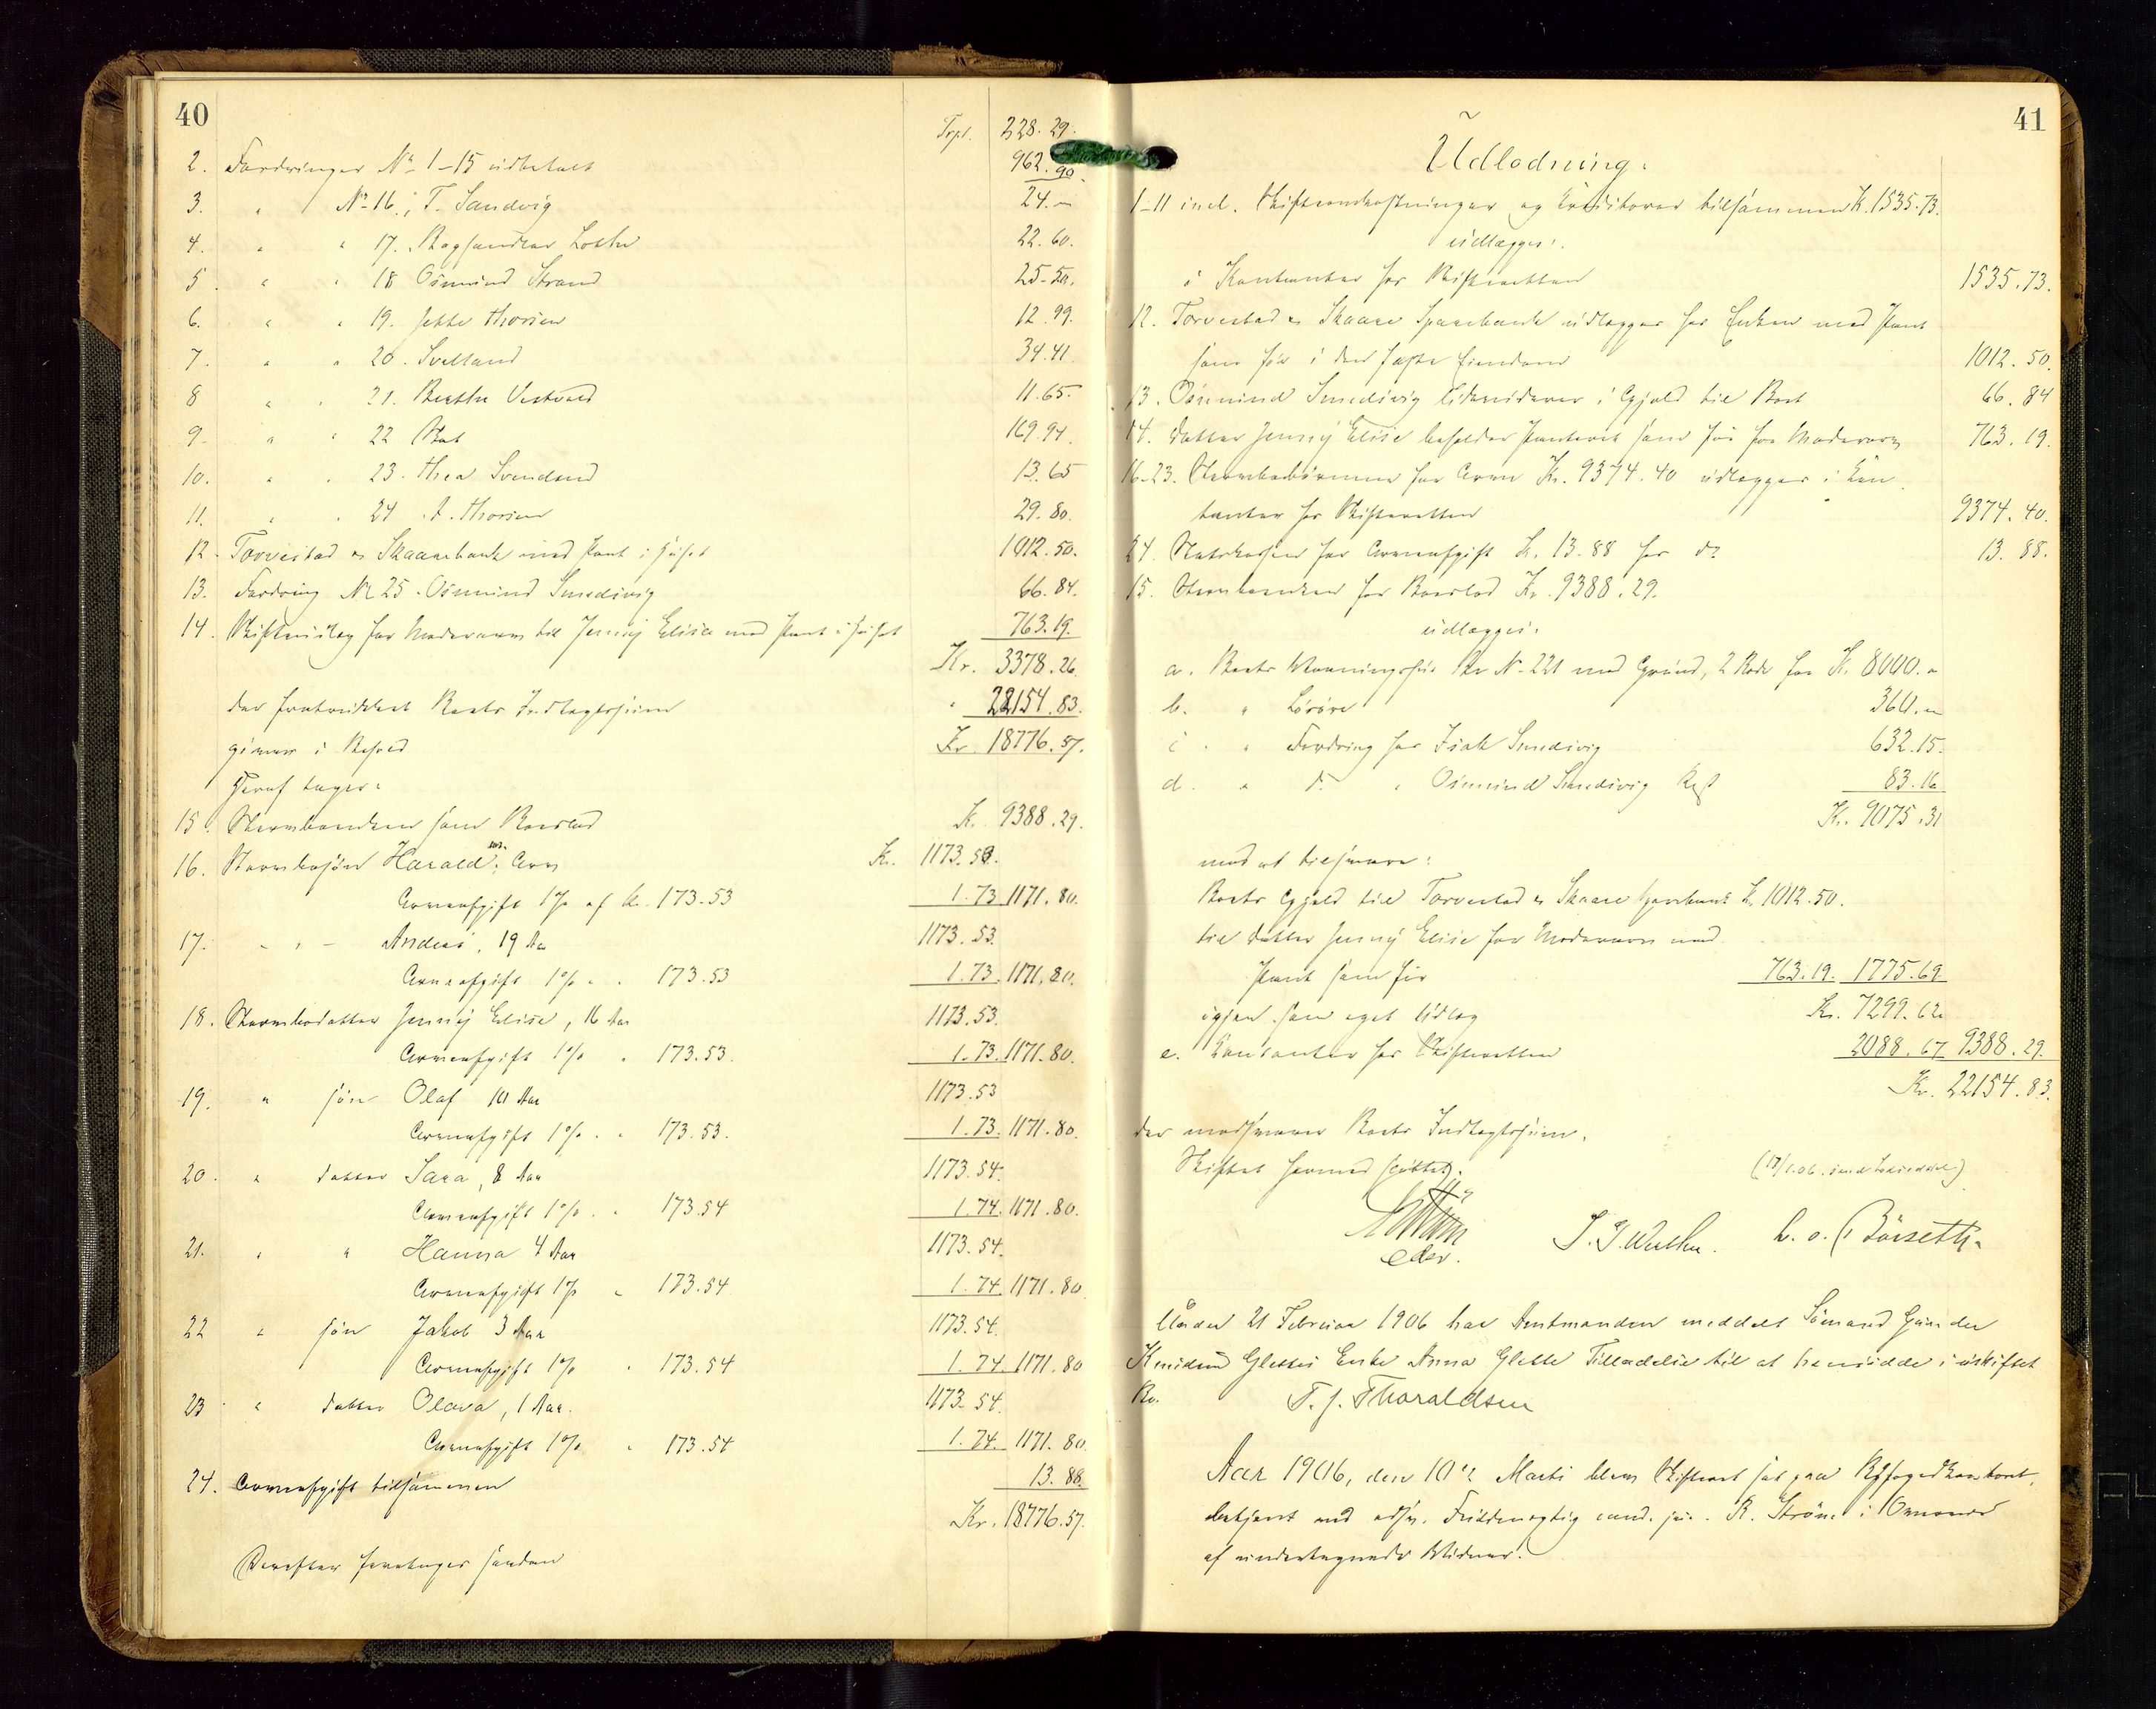 40
Trpt. 228.29.
2. Fordringer No 1–15 udbetalt 962.90
3. " No 16. T. Sandvig 24.–
4. " " 17. Boghandler Lothe 22.60.
5. " " 18 Osmund Strand 25.50.
6. " " 19. Jette Thorsen 12.99.
7. " " 20. Svelland 34.41
8 " " 21. Berthe Vestvold 11.65.
9. " " 22 169.94.
10. " " 23. Thea Svendsen 13.65
11. " " 24 A. Thorsen 29.80.
12. Torvestad & Skaarebank med Pant i Huset 1012.50.
13. Fordring No 25. Osmund Smedsvig 66.84.
14. Skifteudlæg for Modersarv til Jenny Elise med Pant i Huset 763.19.
Kr. 3378.26.
der fratrukket Boets Indtægtssum " 22154.83.
giver i Behold Kr. 18776.57.
Heraf tager:
15. Stervboenken som Boeslod K. 9388.29.
16. Stervbosøn Harald, Arv Kr. 1173.53.
Arveafgift 1% af Kr. 173.53 1.73 1171.80.
17. " " – Andreas, 19 Aar 1173.53.
Arveafgift 1% " " 173.53 1.73. 1171.80.
18. Stervbodatter Jenny Elise, 16 Aar 1173.53.
Arveafgift 1% " 173.53. 1.73. 1171.80.
19. " søn Olaf 10 Aar 1173.53
Arveafgift 1% " " 173.53. 1.73. 1171.80.
20. " datter Sara, 8 Aar 1173.54.
Arveafgift 1% " " 173.54 1.74. 1171.80.
21. " " Hanna 4 Aar 1173.54.
Arveafgift 1% " 173.54 1.74 1171.80
22 " søn Jakob 3 Aar 1173.54.
Arveafgift 1% " 173.54 1.74 1171.80
23 " datter Olava, 1 Aar. 1173.54.
Arveafgift 1% " 173.54 1.74. 1171.80.
24. Arveafgift tilsammen 13.88.
Kr. 18776.57.
Derefter foretoges saadan
41
Udlodning:
1–11 incl. Skifteomkostninger og Kreditorer tilsammen K. 1535.73.
udlægges:
i Kontanter hos Skifteretten 1535.73.
12. Torvestad & Skaare Sparebank udlægges hos Enken med Pant
som før i den faste Eiendom 1012.50.
13. Osmund Smedsvig likviderer i Gjæld til Boet 66.84
14. Datter Jenny Elise beholder Panteret som før for Modersarv 763.19.
16–23. Stervbobørnene for Arv Kr. 9374.40 udlægges i Kon
tanter hos Skifteretten 9374.40.
24. Statskassen for Arveafgift K. 13.88 hos do 13.88.
15. Stervboenken for Boeslod Kr. 9388.29.
udlægges:
a. Boets Vaaningshus No 221 med Grund, 2 Rode for K. 8000.–
b. " Løsøre 360.–
c. " Fordring hos Isak Smedsvig 632.15.
d. " do " Osmund Smedsvig Rest 83.16
Kr. 9075.31
mod at tilsvare:
Boets Gjæld til Torvestad & Skaare Sparebank K. 1012.50.
til datter Jenny Elise for Modersarv med
Pant som før 763.19. 1775.69
igjen som eget Udlæg Kr. 7299.62
e. Kontanter hos Skifteretten 2088.67 9388.29.
Kr. 22154.83.
der modsvarer Boets Indtægtssum.
Skiftet hermed sluttet.
eder. C. o. C. Børseth.
Under 21 Februar 1906 har Amtmanden meddelt Sømand Gunder
Knudsen Glettes Enke Anna Glette Tilladelse til at hensidde i uskiftet
Bo. T. J. Thoraldsen
Aar 1906, den 10de Marts blev Skifteret sat paa Byfogedkontoret,
betjent ved edsv. Fuldmægtig cand. jur. R. Strøm i Overvær
af undertegnede Vidner.